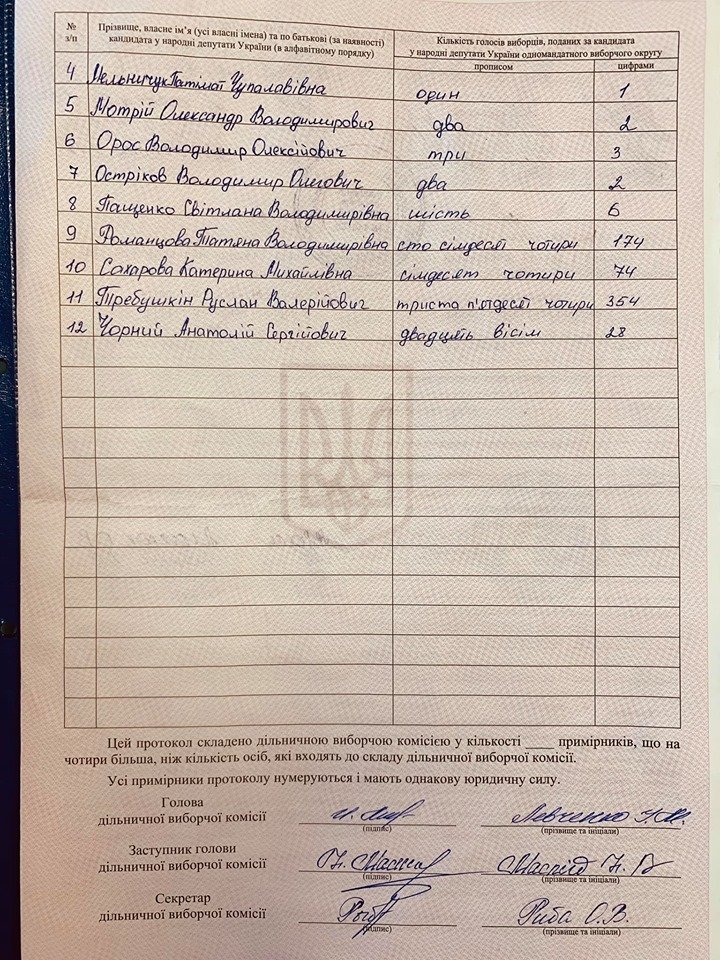 № з/п
Прізвище, власне ім'я (усі власні імена) та по батькові (за наявності) кандидата у народні депутати України (в алфавітному порядку)
Кількість голосів виборців, поданих за кандидата у народні депутати України одномандатного виборчого округу
прописом цифрами
4 Мельничук Патімат Чупалавівна один 1
5 Мотрій Олександр Володимирович два 2
6 Орос Володимир Олексійович три 3
7 Остріков Володимир Олегович два 2
8 Пащенко Світлана Володимирівна шість 6
9 Романцова Татяна Володимирівна сто сімдесят чотири 174
10 Сахарова Катерина Михайлівна сімдесят чотири 74
11 Требушкін Руслан Валерійович триста п'ятдесят чотири 354
12 Чорний Анатолій Сергійович двадцять вісім 28
Цей протокол складено дільничною виборчою комісією у кількості ____ примірників, що на
чотири більша, ніж кількість осіб, які входять до складу дільничної виборчої комісії.
Усі примірники протоколу нумеруються і мають однакову юридичну силу.
Голова
дільничної виборчої комісії Левченко
(підпис) (прізвище та ініціали)
Заступник голови
дільничної виборчої комісії
(підпис) (прізвище та ініціали)
Секретар
дільничної виборчої комісії Риба О.В.
(підпис) (прізвище та ініціали)